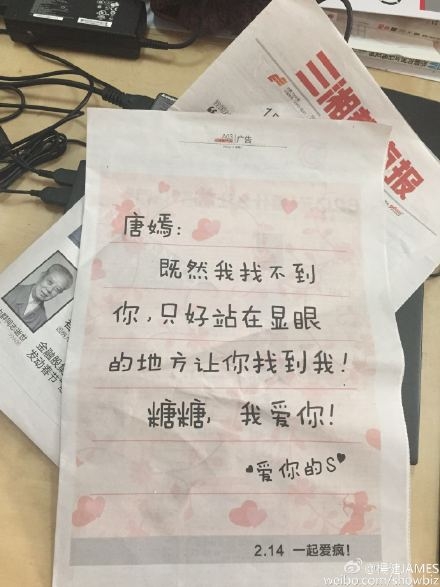 三湘
报
A03 广告
唐嫣：
既然我找不到
你，只好站在显眼
的地方让你找到我！
糖糖，我爱你！
爱你的S
2.14 一起爱疯！
金融股
发动春节
JAMES
weibo.com/showbiz